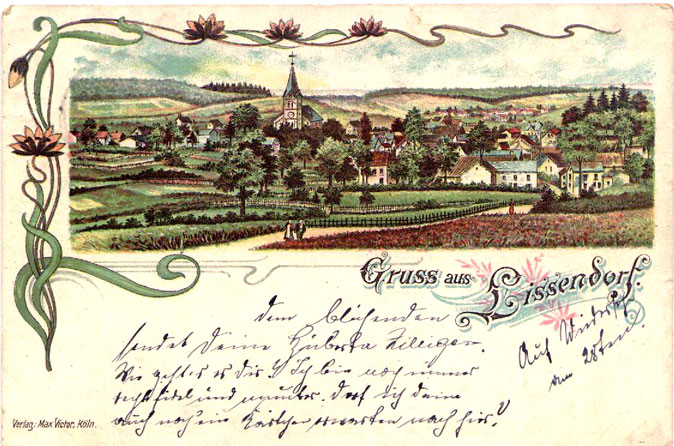 Gruss aus Lissendorf.
dem blühenden
sendet Deine Huberta
Wie geht es dir? Ich bin noch immer
recht fidel und munter. Darf ich deine
auch noch ein Kärtchen erwarten nach hier?
Auf Wiederseh
am 28ten
Verlag: Max Victor, Köln.